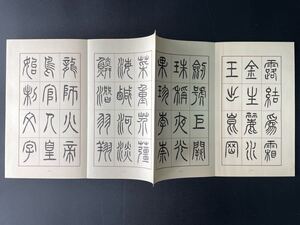 露結爲霜
金生麗水
玉出崑岡
劍號巨闕
珠稱夜光
果珍李柰
菜重芥薑
海鹹河淡
鱗潛羽翔
龍師火帝
鳥官人皇
始制文字